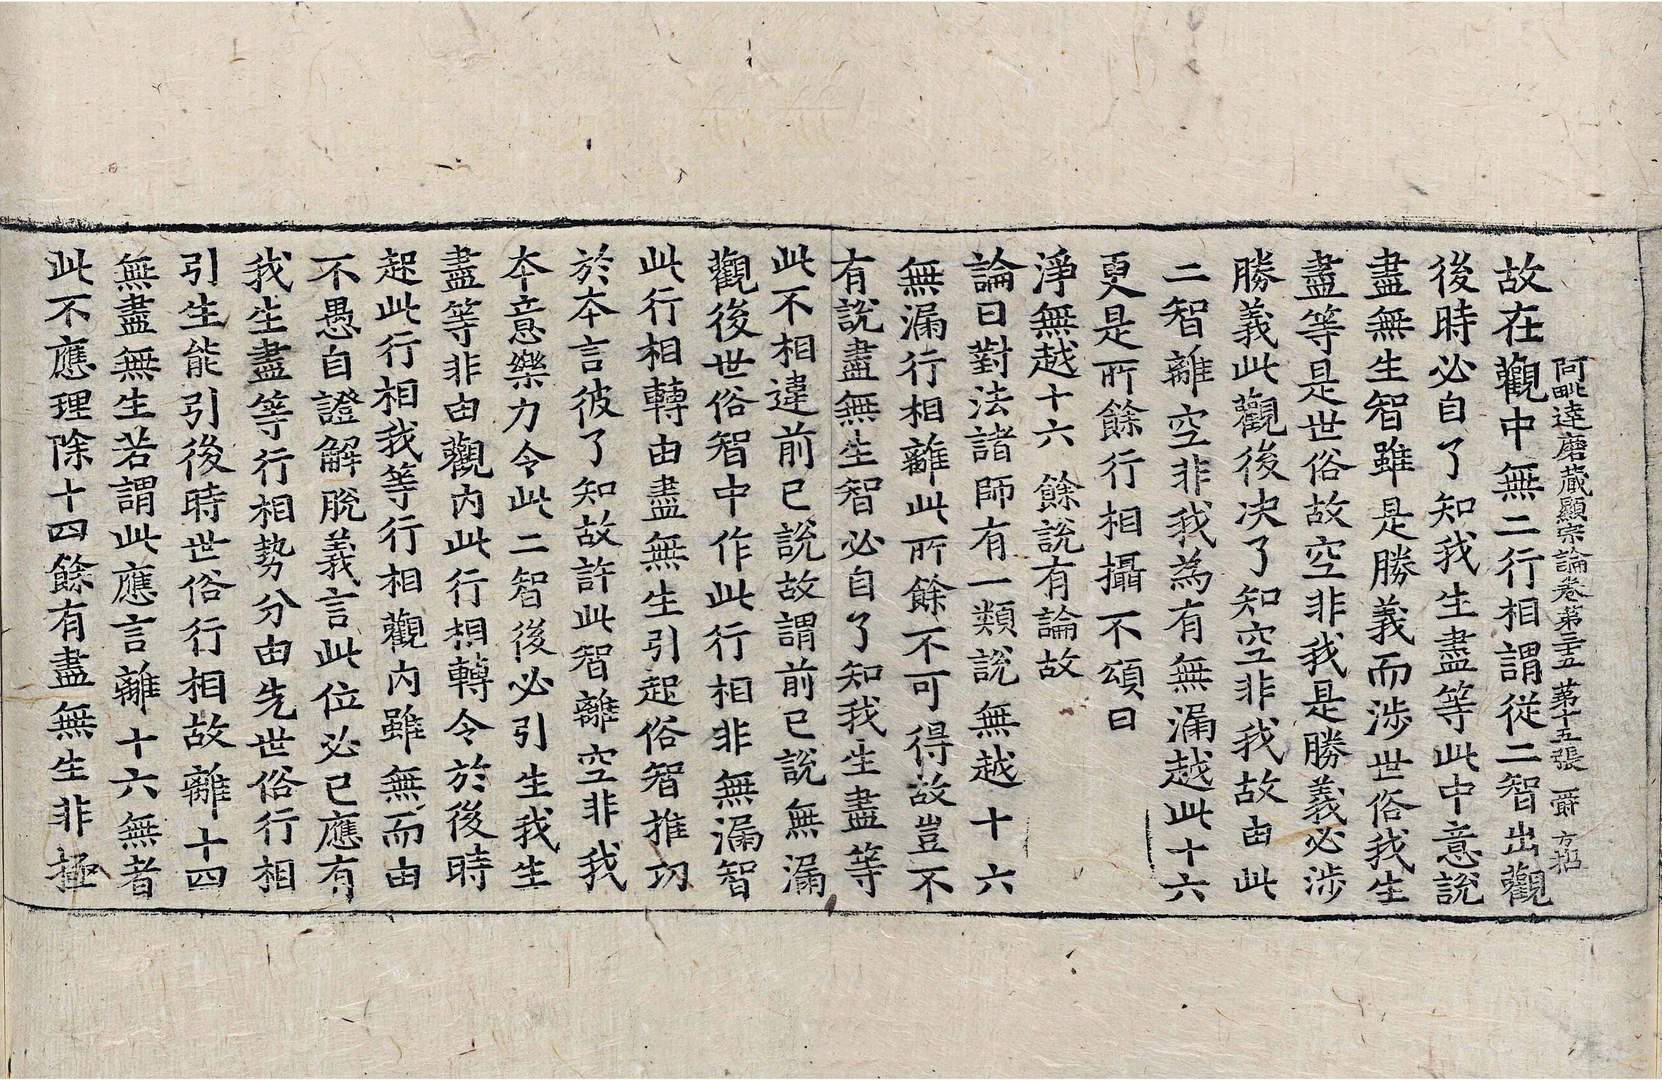 阿毗達磨藏顯宗論卷第三十五 第十五張 爵 方招
故在觀中無二行相謂從二智出觀
後時必自了知我生盡等此中意說
盡無生智雖是勝義而涉世俗我生
盡等是世俗故空非我是勝義必涉
勝義此觀後決了知空非我故由此
二智離空非我為有無漏越此十六
更是所餘行相攝不頌曰
淨無越十六 餘說有論故
論曰對法諸師有一類說無越十六
無漏行相離此所餘不可得故豈不
有說盡無生智必自了知我生盡等
此不相違前已說故謂前已說無漏
觀後世俗智中作此行相非無漏智
此行相轉由盡無生引起俗智推功
於本言彼了知故許此智離空非我
本意樂力令此二智後必引生我生
盡等非由觀內此行相轉令於後時
起此行相我等行相觀內雖無而由
不愚自證解脫義言此位必已應有
我生盡等行相勢分由先世俗行相
引生能引後時世俗行相故離十四
無盡無生若謂此應言離十六無者
此不應理除十四餘有盡無生非極